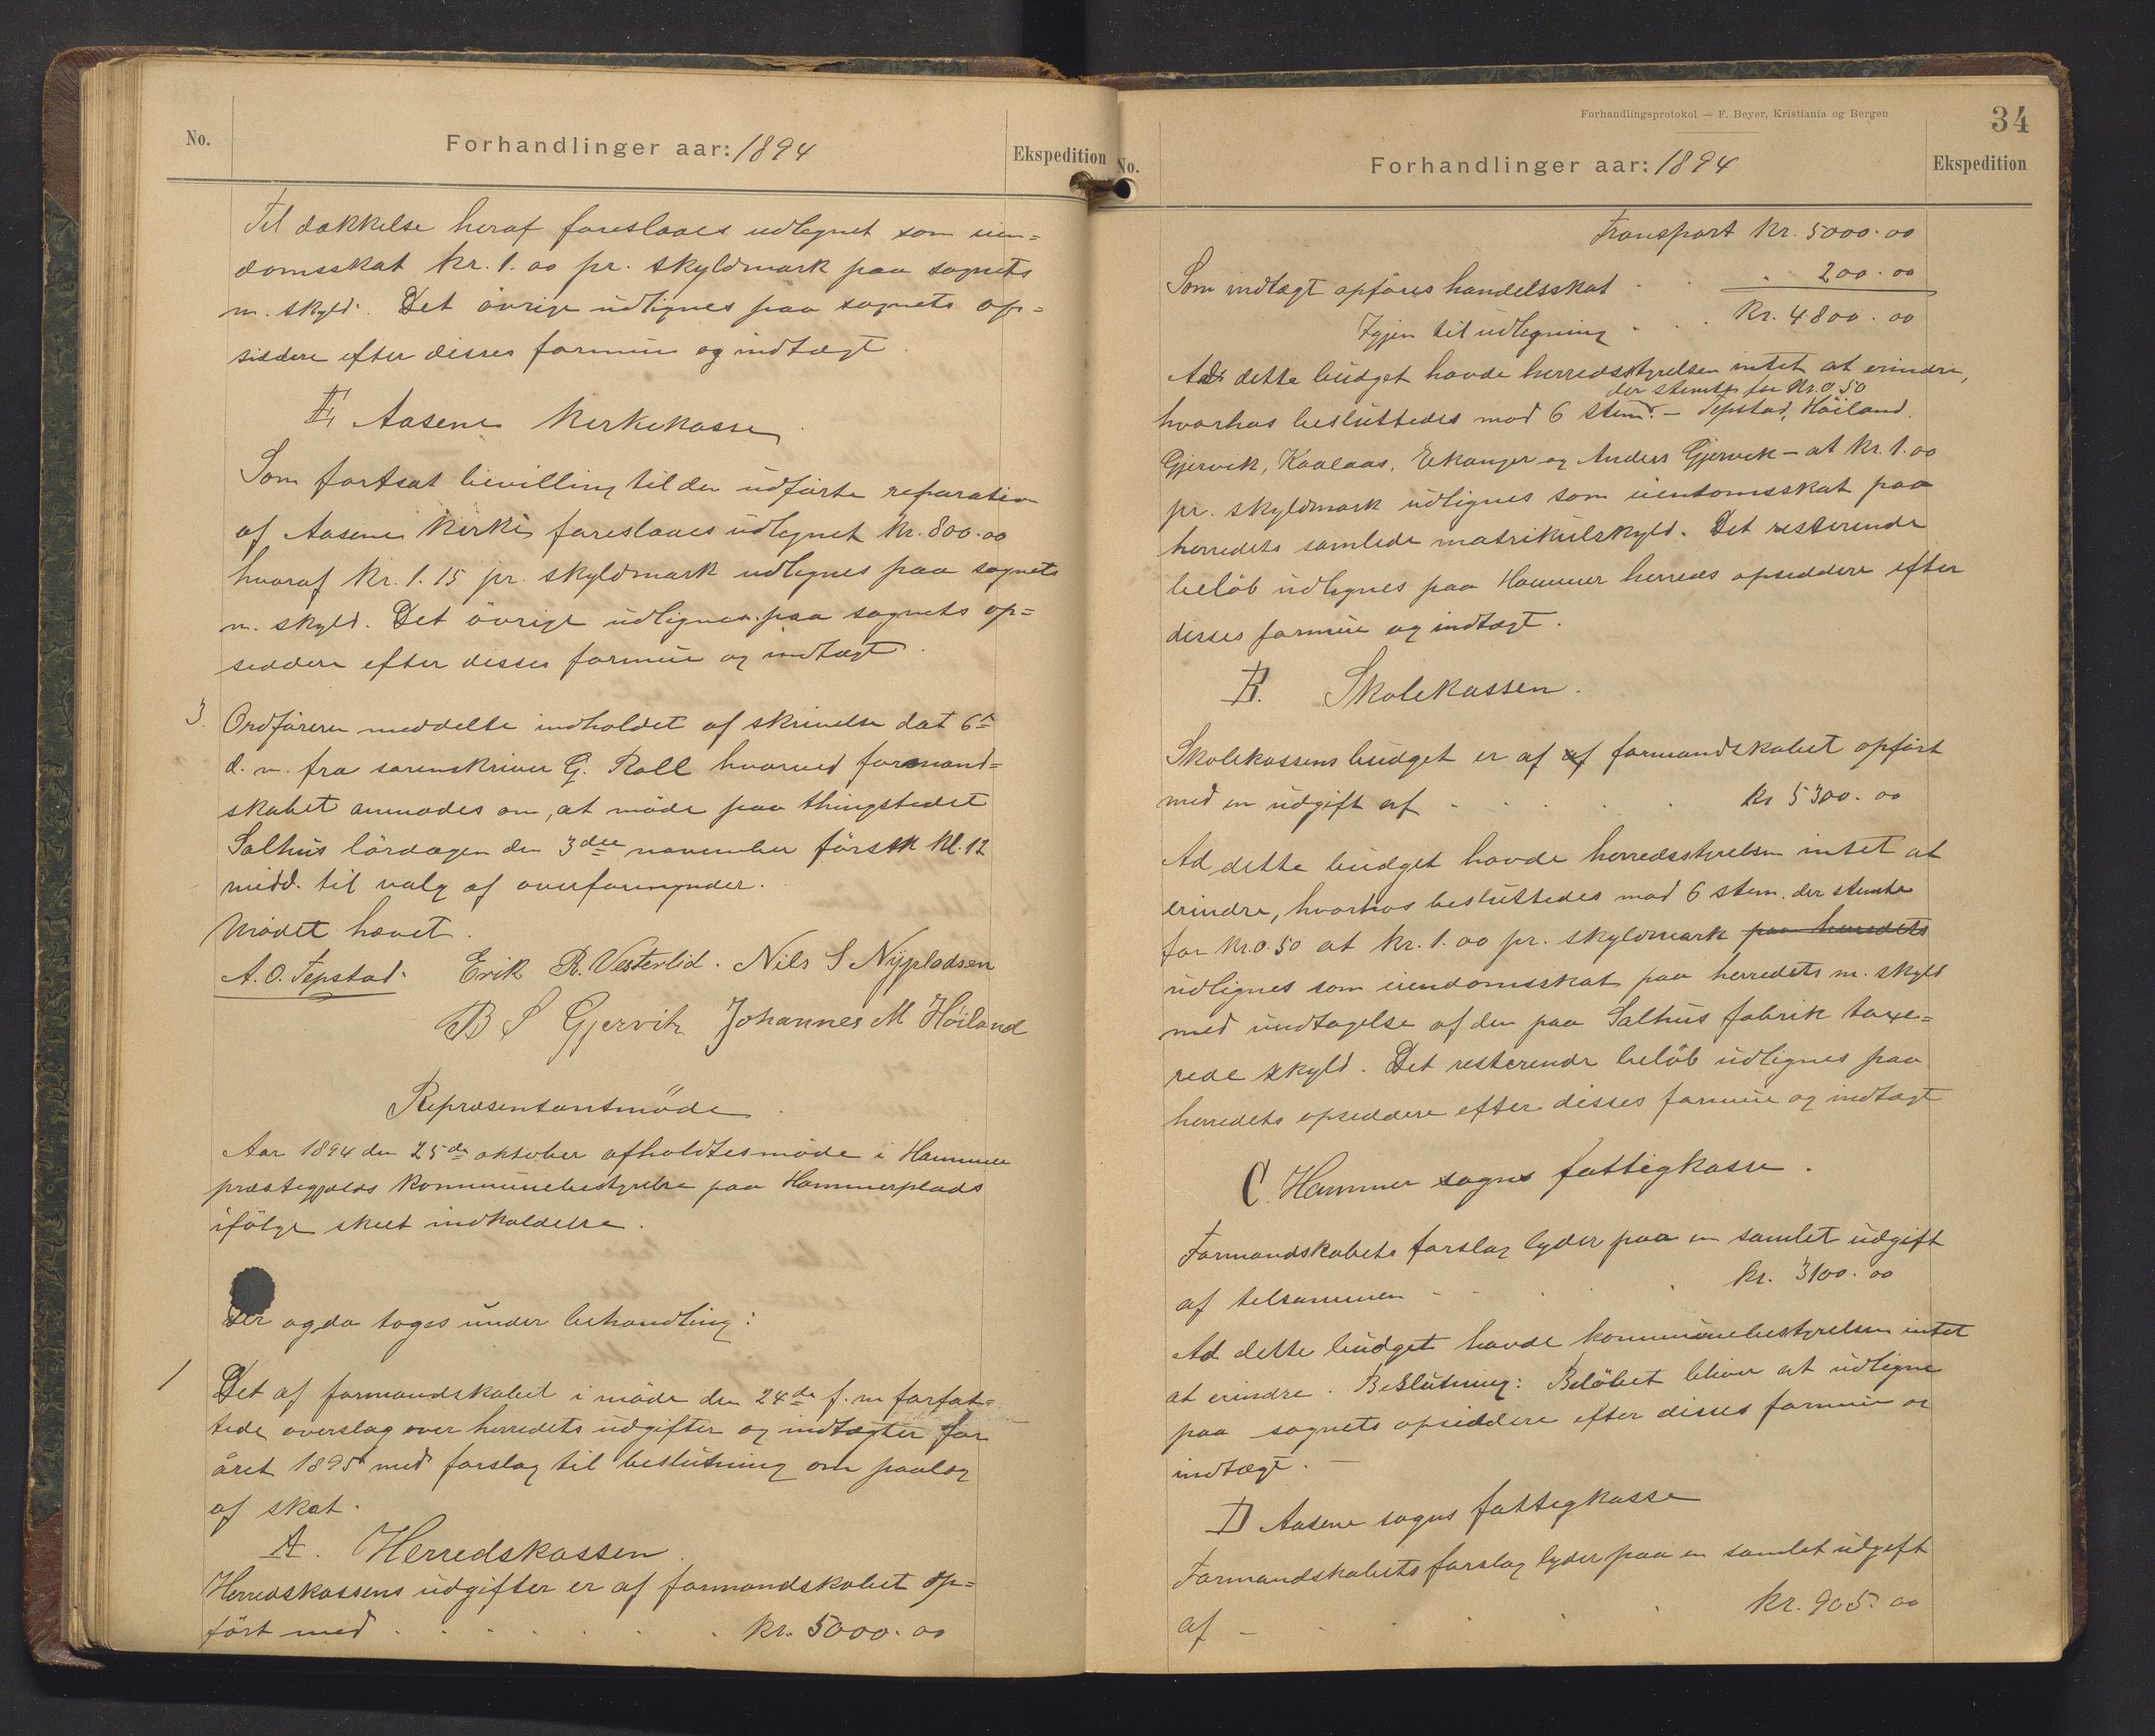 No.
Forhandlinger aar: 1894
Ekspedition
Til dækkelse heraf foreslaaes udlignet som eien=
domsskat kr. 1.00 pr. skyldmark paa sognets
m. skyld. Det övrige udlignes paa sognets op=
siddere efter disses formue og indtægt.
E, Aasene Kirkekasse
Som fortsat bevilling til den udførte reparation
af Aasene Kirke foreslaaes udlignet kr. 800.00
hvoraf kr. 1.15 pr. skyldmark udlignes paa sognets
m. skyld. Det övrige udlignes paa sognets op=
siddere efter disses formue og indtægt.
3. Ordføreren meddelte indholdet af skrivelse dat 6te
d. m. fra sorenskriver G. Roll hvorved formand=
skabet anmodes om, at möde paa thingstedet
Salhus lördagen den 3die november först k kl. 12
midd. til valg af overformynder.
Mödet hævet.
A. O. Tepstad. Erik R. Vesterlid. Nils S Nijpladsen
B S Gjervik Johannes M Höiland
Repræsentantmöde.
Aar 1894 den 25de oktober afholdtes möde i Hammer
præstegjælds kommunebestyrelse paa Hammerplads
ifölge skeet indkaldelse.
Der og da toges under behandling:
1 Det af formandskabet i möde den 24de f. m. forfat=
tede overslag over herredets udgifter og indtægter for
året 1895 med forslag til beslutning om paalæg
af skat.
A. Herredskassen.
Herredskassens udgifter er af formandskabet op=
ført med . . . . . . kr. 5000.00
Forhandlingsprotokol — F. Beyer, Kristiania og Bergen
34
No.
Forhandlinger aar: 1894
Ekspedition
Transport kr. 5000.00
Som indtægt opføres handelsskat . . . 200.00
Igjen til udligning . . . Kr. 4800.00
Ad dette budget havde herredsstyrelsen intet at erindre,
der stemte for kr. 0.50
hvorhos besluttedes mod 6 stem. – Tepstad, Höiland.
Gjervik, Kaalaas, Eikanger og Anders Gjervik – at kr. 1.00
pr. skyldmark udlignes som eiendomsskat paa
herredets samlede matrikulskyld. Det resterende
beløb udlignes paa Hammer herreds opsiddere efter
disses formue og indtægt.
B. Skolekassen.
Skolekassens budget er af af formandskabet opført
med en udgift af . . . . . kr 5300.00
Ad dette budget havde herredsstyrelsen intet at
erindre, hvorhos besluttedes mod 6 stem. der stemte
for kr. 0.50 at kr. 1.00 pr. skyldmark paa herredets
udlignes som eiendomsskat paa herredets m. skyld
med undtagelse af den paa Salhus fabrik taxe=
rede skyld. Det resterende beløb udlignes paa
herredets opsiddere efter disses formue og indtægt
C. Hammer sogns fattigkasse.
Formandskabets forslag lyder paa en samlet udgift
af tilsammen - . . . kr. 3100.00
Ad dette budget havde kommunebestyrelsen intet
at erindre. Beslutning: Beløbet bliver at udligne
paa sognets opsiddere efter disses formue og
indtægt. –
D Aasene sogns fattigkasse
Formandskabets forslag lyder paa en samlet udgift
af - . . . kr. 905.00